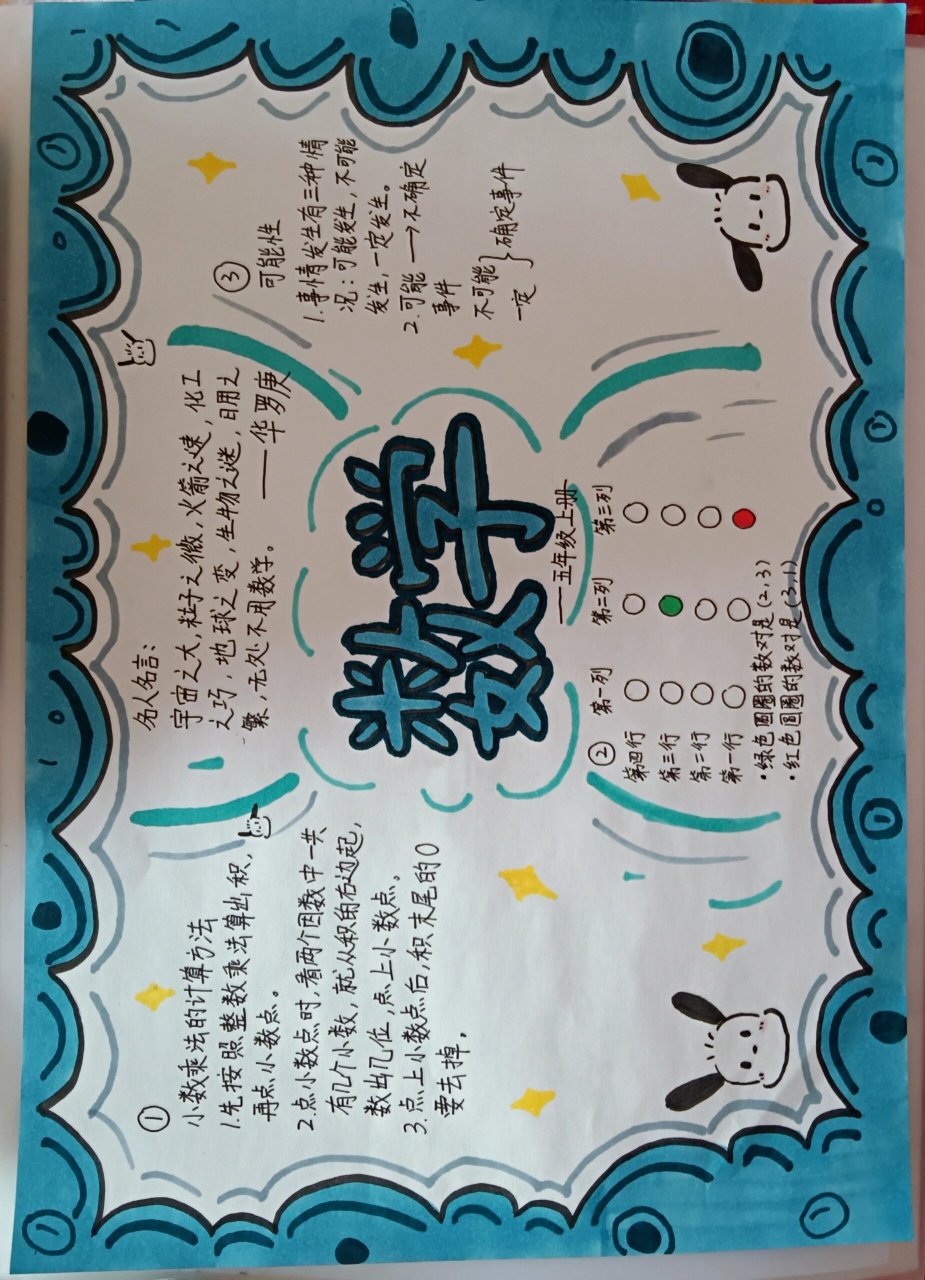 数学
——五年级上册
名人名言：
宇宙之大，粒子之微，火箭之速，化工
之巧，地球之变，生物之谜，日用之
繁，无处不用数学。
——华罗庚
①
小数乘法的计算方法
1.先按照整数乘法算出积，
再点小数点。
2.点小数点时，看两个因数中一共
有几个小数，就从积的右边起，
数出几位，点上小数点。
3.点上小数点后，积末尾的0
要去掉，
②
第一列 第二列 第三列
第四行
第三行
第二行
第一行
·绿色圆圈的数对是(2,3)
·红色圆圈的数对是(3,1)
③
可能性
1.事情发生有三种情
况：可能发生，不可能
发生，一定发生。
2.可能→不确定
事件
不可能
一定
}确定事件